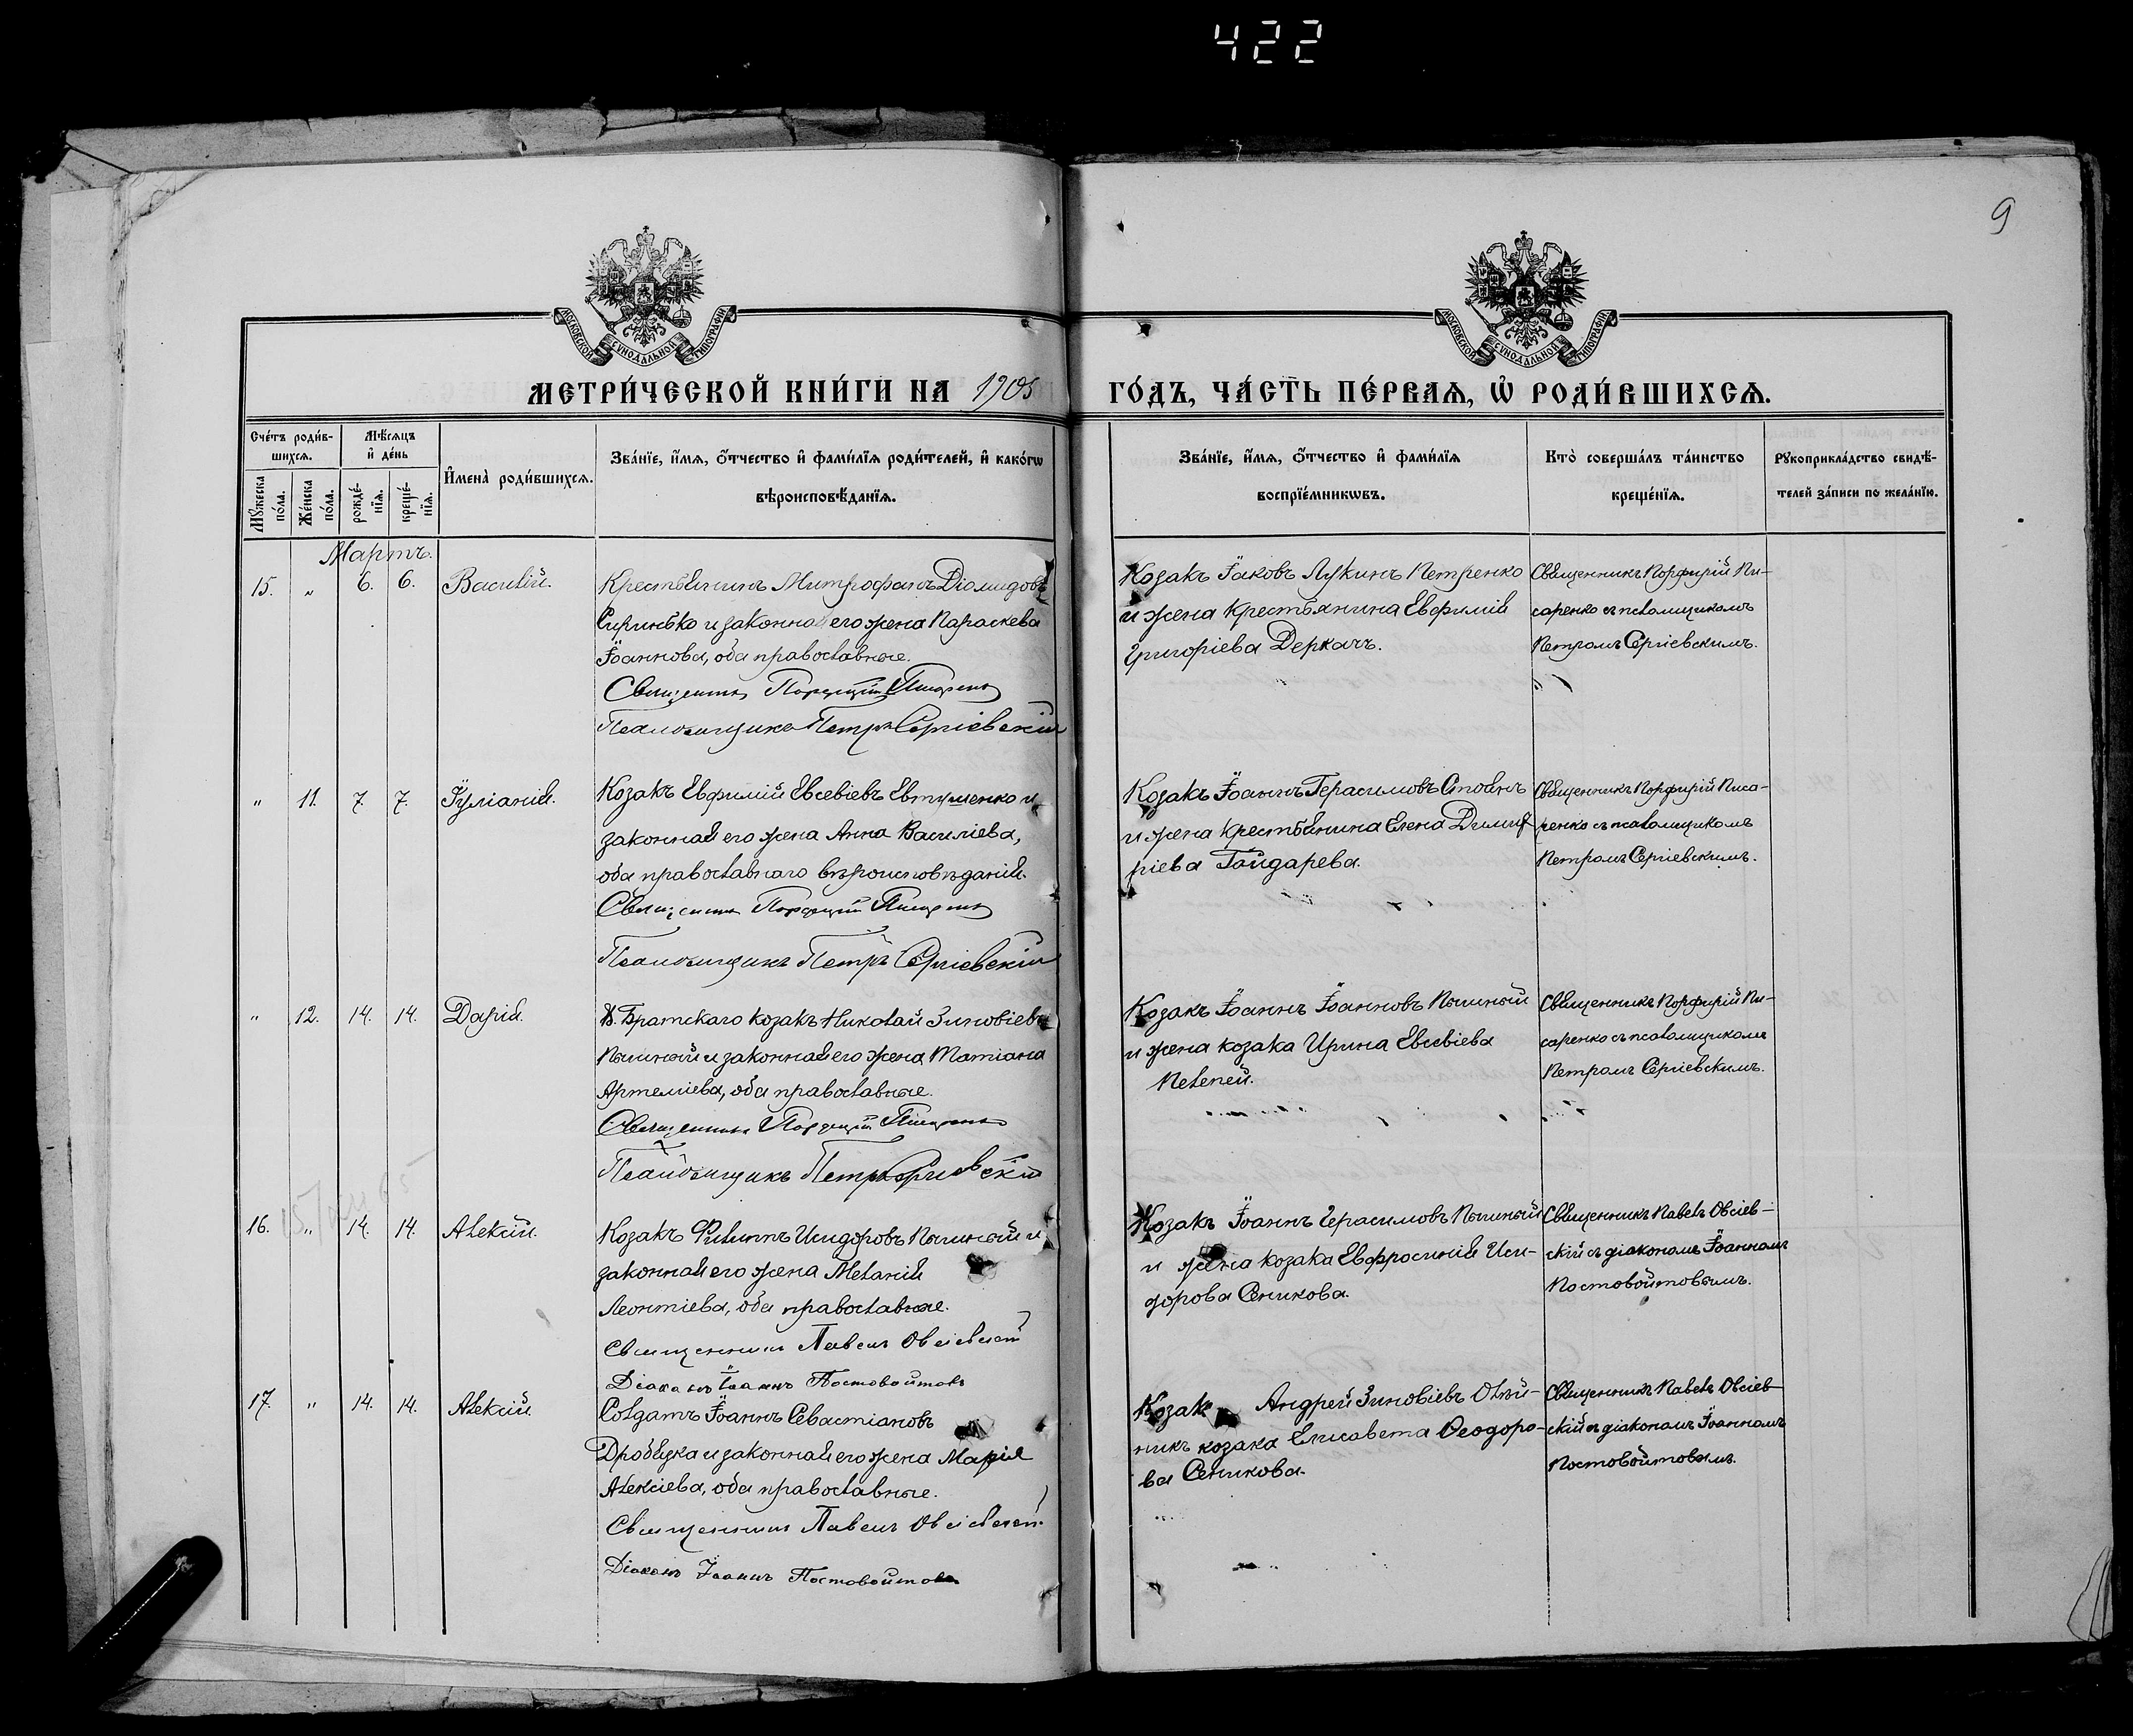 422
9
МОСКОВСКОЙ СѴНОДАЛЬНОЙ ТИПОГРАФІИ
МОСКОВСКОЙ СѴНОДАЛЬНОЙ ТИПОГРАФІИ
МЕТРИ́ЧЕСКОЙ КНИ́ГИ НА 1905 ГО́ДЪ, ЧА́СТЬ ПЕ́РВАѦ, Ѡ҆ РОДИ́ВШИХСѦ.
Сче́тъ роди́в-
шихсѧ.
Мѣ́сѧцъ
и҆ де́нь
Мꙋ́жеска
по́ла.
Же́нска
по́ла.
рожде́-
нїѧ.
креще́-
нїѧ.
И҆мена̀ роди́вшихсѧ.
Зва́нїе, и҆́мѧ, ѻ҆́тчество и҆ фами́лїѧ роди́телей, и҆ како́гѡ
вѣроисповѣ́данїѧ.
Зва́нїе, и҆́мѧ, ѻ҆́тчество и҆ фами́лїѧ
воспрїе́мникѡвъ.
Кто̀ соверша́лъ та́инство
креще́нїѧ.
Рꙋкоприкла́дство свидѣ́-
телей за́писи по жела́нїю.
Мартъ.
15. " 6. 6. Василій.
Крестьянинъ Митрофанъ Діомидовъ
и законная его жена Параскева
Іоаннова, оба православные.
Священникъ Порфирій Писаренко
Псаломщикъ Петръ Сергіевскій
Козакъ Іаковъ Лукинъ Петренко
и жена крестьянина Евфимія
Григоріева Деркачъ.
Священникъ Порфирій Пи-
саренко съ псаломщикомъ
Петромъ Сергіевскимъ.
" 11. 7. 7. Іуліанія.
Козакъ Евфимій Евсевіевъ Евтушенко и
законная его жена Анна Василіева,
оба православнаго вѣроисповѣданія.
Священникъ Порфирій Писаренко
Псаломщикъ Петръ Сергіевскій
Козакъ Іоаннъ Герасимовъ Стоянъ
и жена крестьянина Елена Димит
ріева Гайдарева.
Священникъ Порфирій Писа-
ренко съ псаломщикомъ
Петромъ Сергіевскимъ.
" 12. 14. 14. Дарія.
Братскаго козакъ Николай Зиновіевъ
Пышный и законная его жена Татіана
Артеміева, оба православные.
Священникъ Порфирій Писаренко
Псаломщикъ Петръ Сергіевскій
Козакъ Іоаннъ Іоанновъ Пышный
и жена козака Ирина Евсевіева
Пелепей.
Священникъ Порфирій Пи-
саренко съ псаломщикомъ
Петромъ Сергіевскимъ.
16. " 14. 14. Алексій.
Козакъ Филиппъ Исидоровъ Пышный и
законная его жена Меланія
Леонтіева, оба православные.
Священникъ Павелъ Овсіевскій
Діаконъ Іоаннъ Постовойтовъ
Козакъ Іоаннъ Герасимовъ Пышный
и жена козака Евфросинія Иси-
дорова Сеникова.
Священникъ Павелъ Овсіев-
скій съ діакономъ Іоанномъ
Постовойтовымъ.
17. " 14. 14. Алексій.
Солдатъ Іоаннъ Севастіановъ
Дробязка и законная его жена Марія
Алексіева, оба православные.
Священникъ Павелъ Овсіевскій.
Діаконъ Іоаннъ Постовойтовъ
Козакъ Андрей Зиновіевъ Олѣй-
никъ козака Елисавета Ѳеодоро-
ва Сеникова.
Священникъ Павелъ Овсіев-
скій съ діакономъ Іоанномъ
Постовойтовымъ.